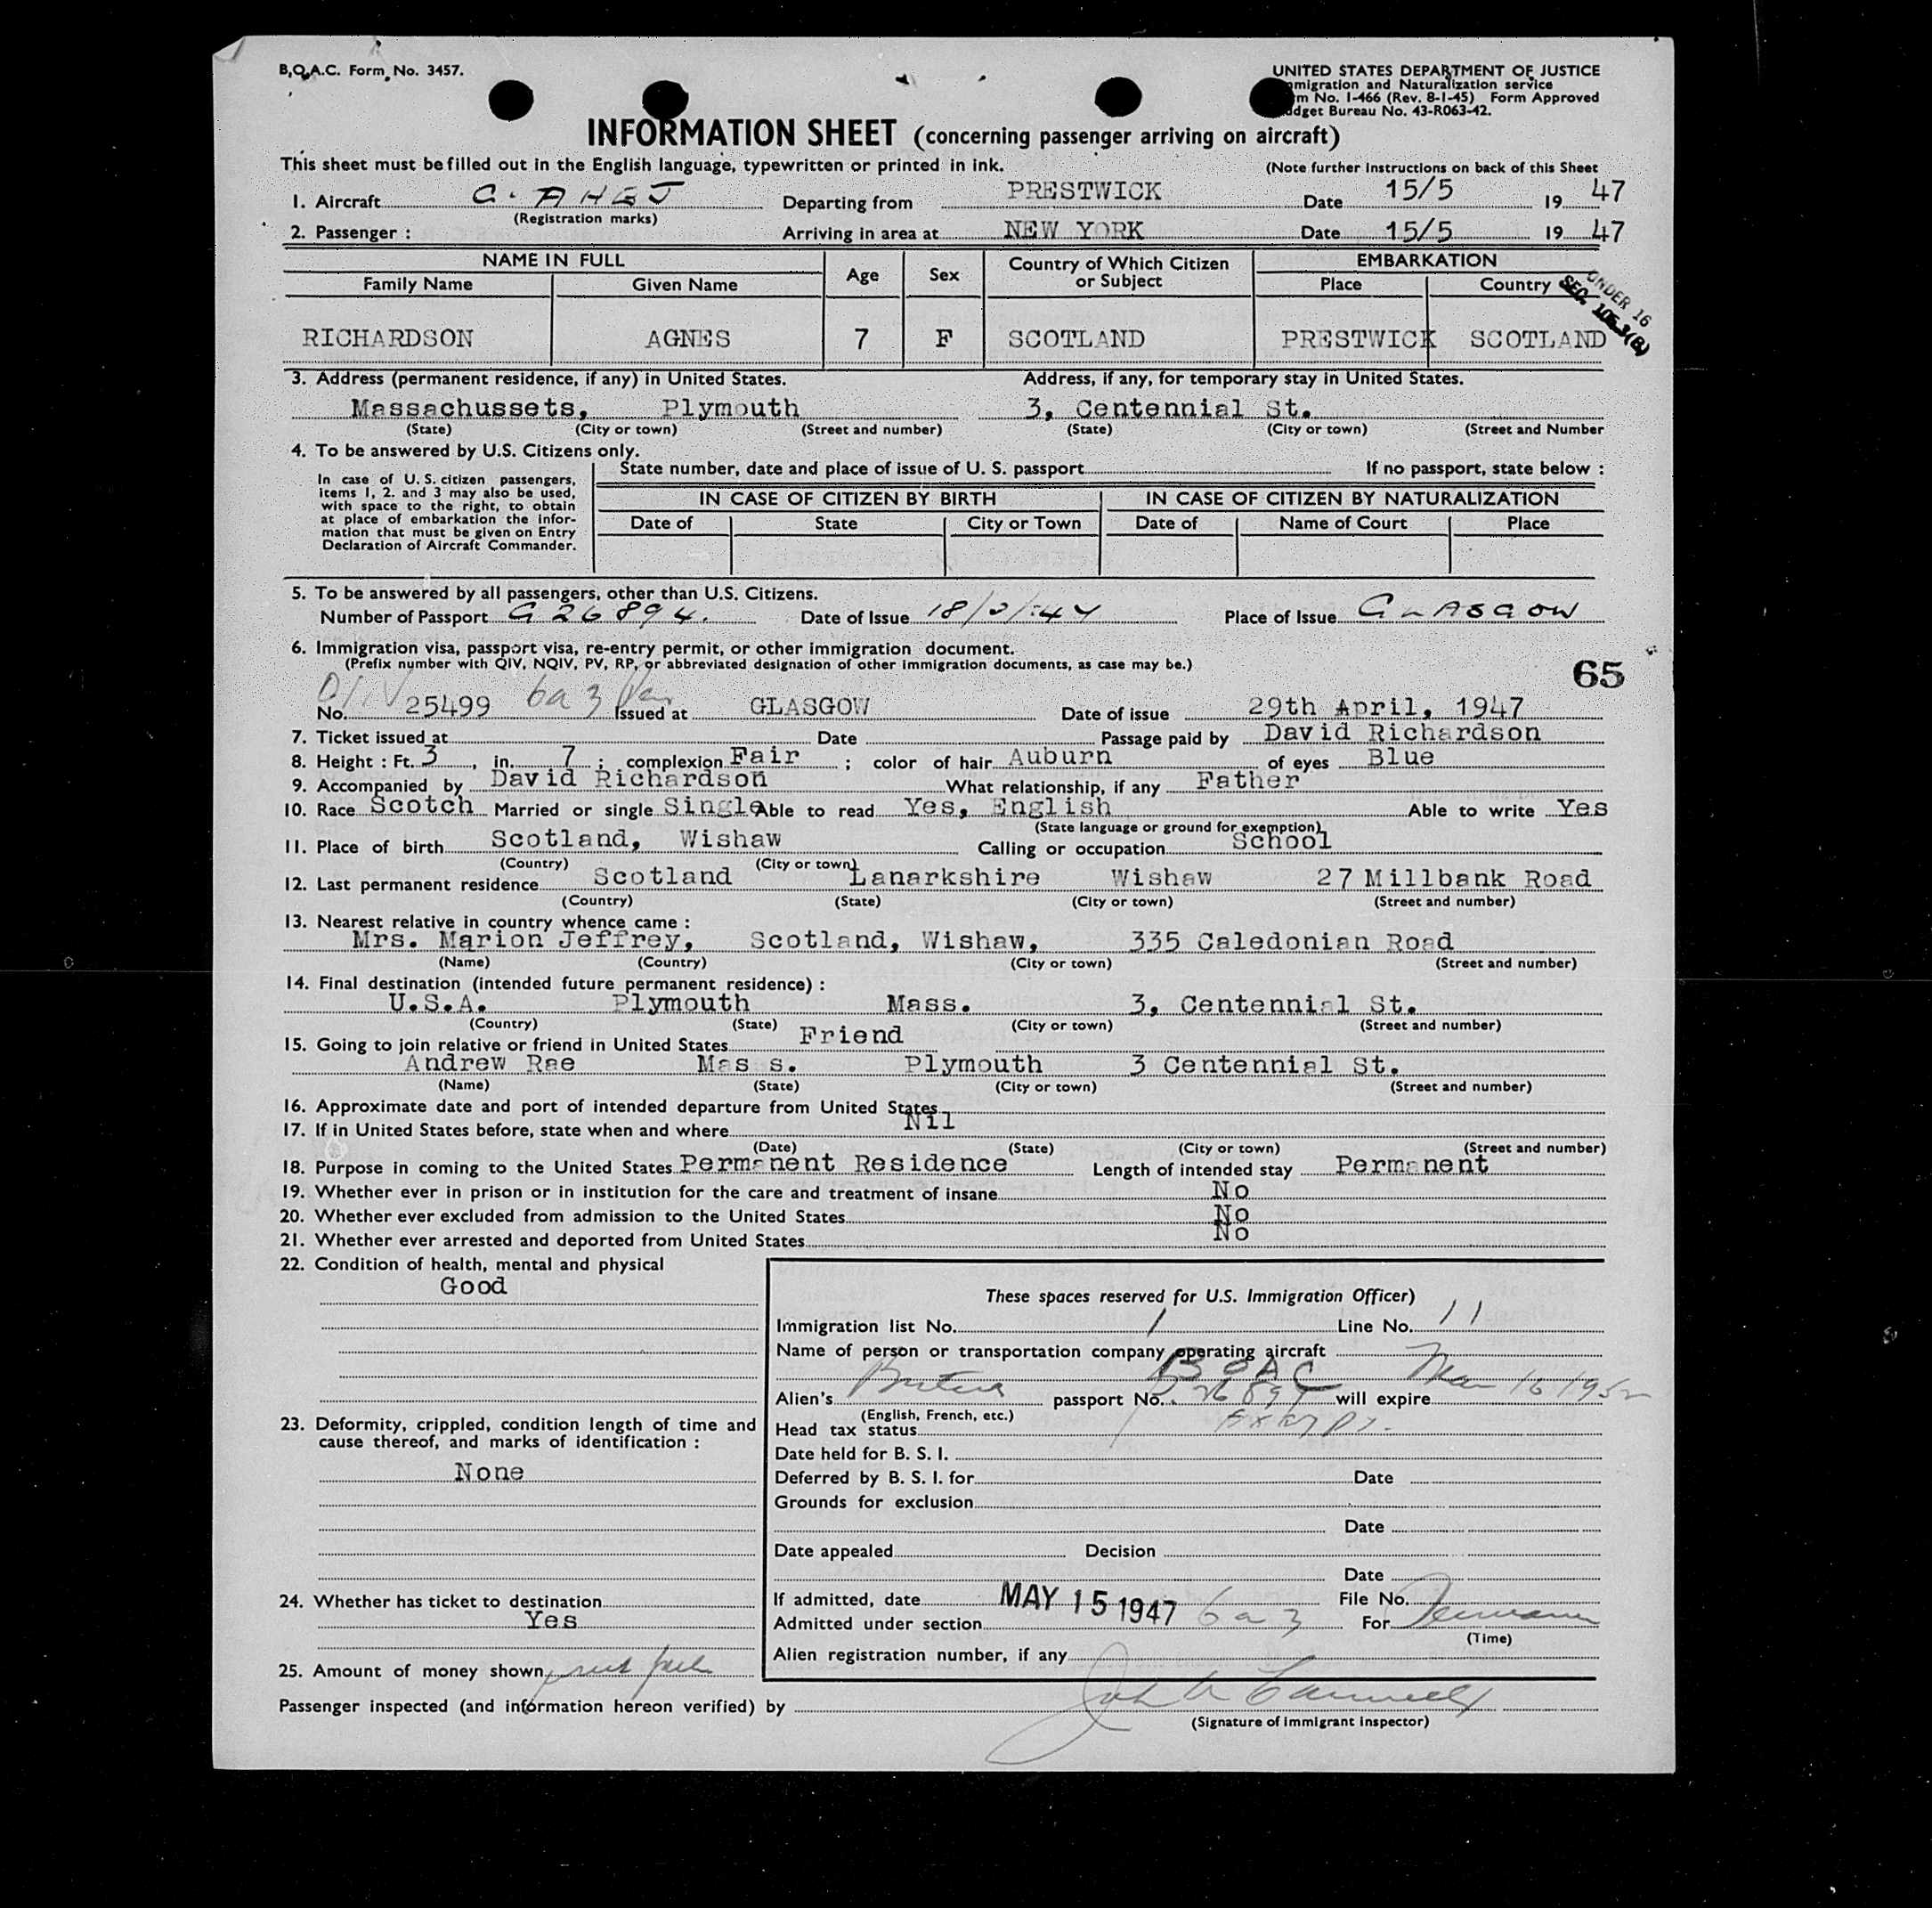 B.O.A.C. Form No. 3457.
UNITED STATES DEPARTMENT OF JUSTICE
mmigration and Naturalization service
rm No. I-466 (Rev. 8-1-45) Form Approved
udget Bureau No. 43-R063-42.
INFORMATION SHEET (concerning passenger arriving on aircraft)
This sheet must be filled out in the English language, typewritten or printed in ink. (Note further instructions on back of this Sheet
1. Aircraft G. AHGJ Departing from PRESTWICK Date 15/5 19 47
(Registration marks)
2. Passenger : Arriving in area at NEW YORK Date 15/5 19 47
NAME IN FULL Age Sex Country of Which Citizen or Subject EMBARKATION
Family Name Given Name Place Country
UNDER 16
SEC. 105.3(B)
RICHARDSON AGNES 7 F SCOTLAND PRESTWICK SCOTLAND
3. Address (permanent residence, if any) in United States. Address, if any, for temporary stay in United States.
Massachussets, Plymouth 3, Centennial St.
(State) (City or town) (Street and number) (State) (City or town) (Street and Number
4. To be answered by U.S. Citizens only.
State number, date and place of issue of U. S. passport If no passport, state below :
In case of U. S. citizen passengers,
items 1, 2. and 3 may also be used,
with space to the right, to obtain
at place of embarkation the infor-
mation that must be given on Entry
Declaration of Aircraft Commander.
IN CASE OF CITIZEN BY BIRTH IN CASE OF CITIZEN BY NATURALIZATION
Date of State City or Town Date of Name of Court Place
5. To be answered by all passengers, other than U.S. Citizens.
Number of Passport G 26894. Date of Issue Place of Issue GLASGOW
6. Immigration visa, passport visa, re-entry permit, or other immigration document.
(Prefix number with QIV, NQIV, PV, RP, or abbreviated designation of other immigration documents, as case may be.)
65
No. 25499 6a3 Issued at GLASGOW Date of issue 29th April, 1947
7. Ticket issued at Date Passage paid by David Richardson
8. Height : Ft. 3 , in. 7 ; complexion Fair ; color of hair Auburn of eyes Blue
9. Accompanied by David Richardson What relationship, if any Father
10. Race Scotch Married or single Single Able to read Yes, English Able to write Yes
(State language or ground for exemption)
11. Place of birth Scotland, Wishaw Calling or occupation School
(Country) (City or town)
12. Last permanent residence Scotland Lanarkshire Wishaw 27 Millbank Road
(Country) (State) (City or town) (Street and number)
13. Nearest relative in country whence came :
Mrs. Marion Jeffrey, Scotland, Wishaw, 335 Caledonian Road
(Name) (Country) (City or town) (Street and number)
14. Final destination (intended future permanent residence) :
U.S.A. Plymouth Mass. 3, Centennial St.
(Country) (State) (City or town) (Street and number)
15. Going to join relative or friend in United States Friend
Andrew Rae Mass. Plymouth 3 Centennial St.
(Name) (State) (City or town) (Street and number)
16. Approximate date and port of intended departure from United States
17. If in United States before, state when and where Nil
(Date) (State) (City or town) (Street and number)
18. Purpose in coming to the United States Permanent Residence Length of intended stay Permanent
19. Whether ever in prison or in institution for the care and treatment of insane No
20. Whether ever excluded from admission to the United States No
21. Whether ever arrested and deported from United States No
22. Condition of health, mental and physical
Good
These spaces reserved for U.S. Immigration Officer)
Immigration list No. 1 Line No. 11
Name of person or transportation company operating aircraft
BOAC
Alien's passport No. 26894 will expire Mar 16 1952
(English, French, etc.)
23. Deformity, crippled, condition length of time and
cause thereof, and marks of identification :
None
Head tax status Exempt.
Date held for B. S. I.
Deferred by B. S. I. for Date
Grounds for exclusion
Date
Date appealed Decision
Date
24. Whether has ticket to destination
Yes
If admitted, date MAY 15 1947 File No.
Admitted under section 6a3 For
(Time)
Alien registration number, if any
25. Amount of money shown
Passenger inspected (and information hereon verified) by
(Signature of Immigrant Inspector)